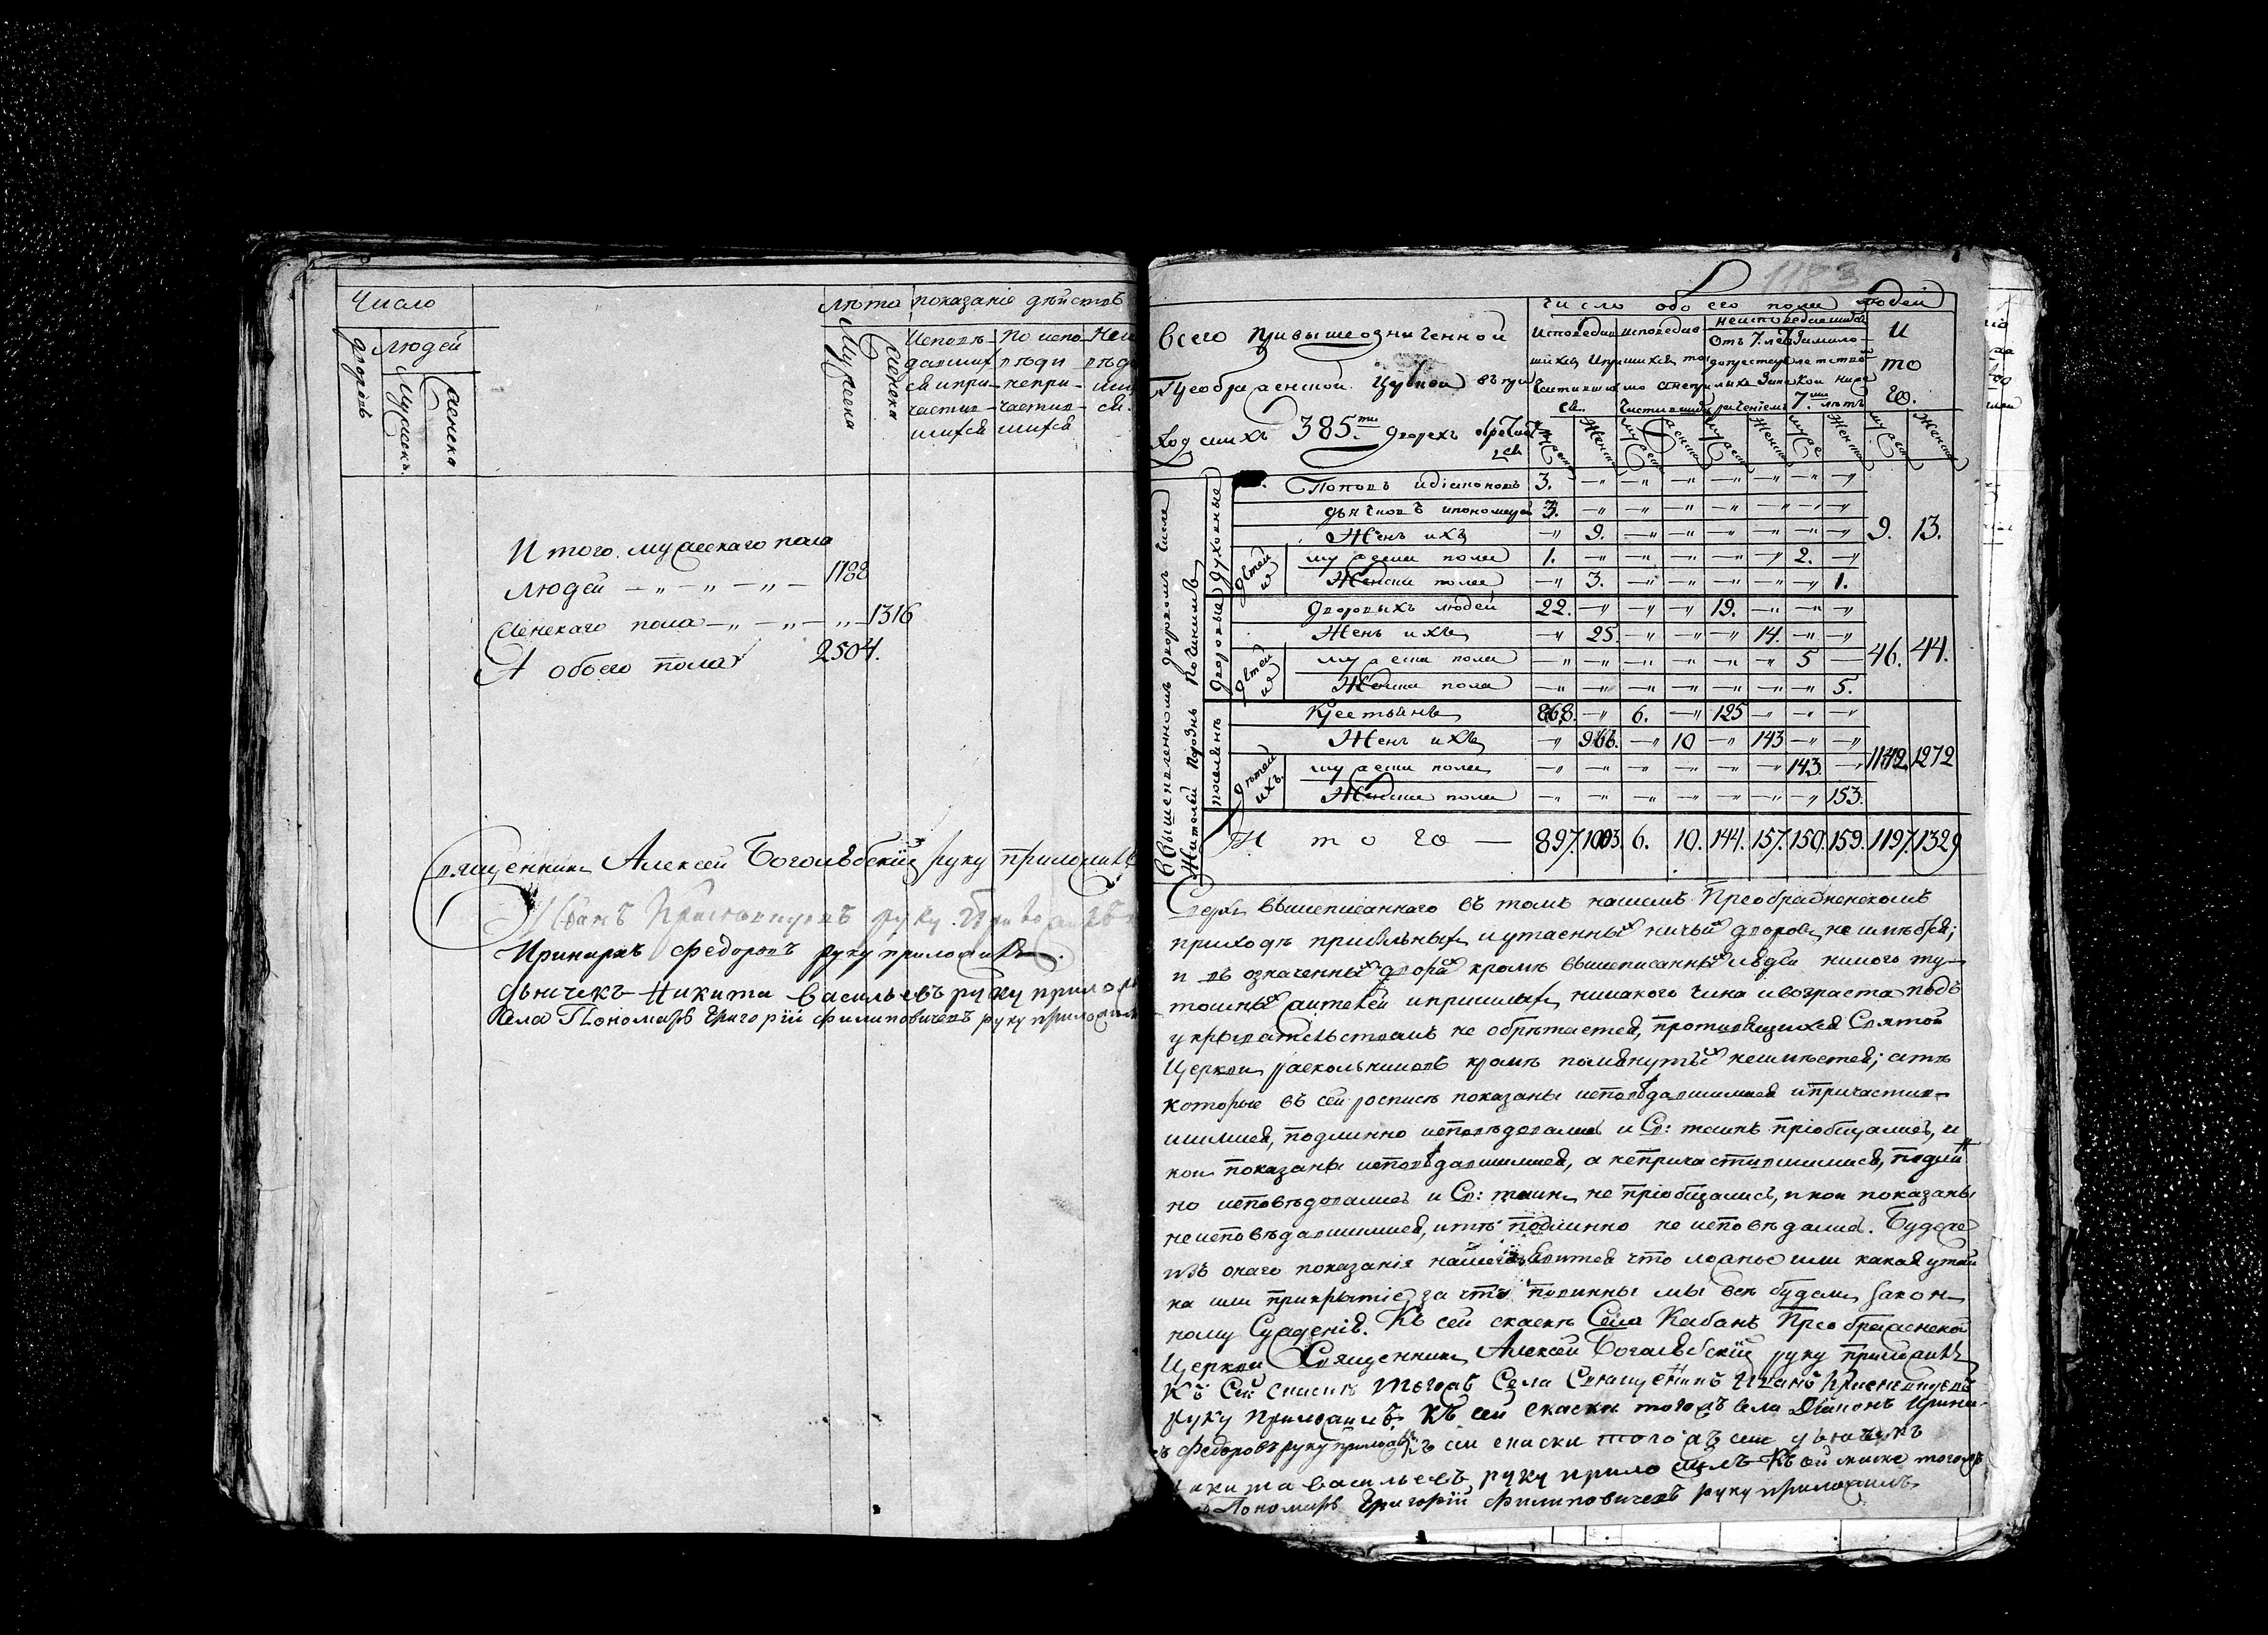 Число
лѣта показаніе дѣйствъ
дворовъ
людей
мужескъ.
женска
мужеска
женска
Исповѣ-
давших
ся и при-
частив-
шихся
По испо-
вѣди
непри-
частив-
шихся
Итого мужескаго пола
людей — „ — „ — „ — 1188
женскаго пола — „ — „ — „ — 1316
А обоего пола 2504.
Священникъ Алексѣй Боголѣбскій руку приложилъ
Иванъ руку
Иринархъ Федоровъ руку приложилъ.
дьячекъ Никита Васильевъ руку прилож
села Пономарь Григорій Филиповичевъ руку приложилъ
1183
всего при вышеозначенной
Преображенской Церкви въ при
ходскихъ 385.ти дворехъ
число обоего пола людей
неисповѣдавшихся
и
то
го.
Поповъ и діаконовъ 3. —„ —„ —„ —„ —„ —„ —„
дьячковъ и пономарей 3. —„ —„ —„ —„ —„ —„ —„
Женъ ихъ —„ 9. —„ —„ —„ —„ —„ —„ 9. 13.
мужеска пола 1. —„ —„ —„ —„ —„ 2. —„
Женска пола —„ 3. —„ —„ —„ —„ —„ 1.
дворовыхъ людей 22. —„ —„ —„ 19. —„ —„ —„
Женъ ихъ —„ 25. —„ —„ —„ 14. —„ —„ 46. 44.
мужеска пола —„ —„ —„ —„ —„ —„ 5 —
Женска пола —„ —„ —„ —„ —„ —„ —„ 5.
Крестьянъ 868. —„ 6. —„ 125 —„ —„ —„
Женъ ихъ —„ 966. —„ 10 —„ 143 —„ —„ 1142 1272
мужеска пола —„ —„ —„ —„ —„ —„ 143. —„
Женска пола —„ —„ —„ —„ —„ —„ —„ 153.
духовные
дворовые
поселянъ
дѣтей ихъ
Итого — 897. 1003. 6. 10. 144. 157. 150. 159. 1197. 1329
Сверхъ вышеписаннаго въ томъ нашемъ Преображенскомъ
приходѣ прибылыхъ и утаенныхъ ничьихъ дворовъ не имѣется;
и въ означенныхъ дворахъ кромѣ вышеписанныхъ людей никого ту-
тошныхъ жителей и пришлыхъ никакого чина и возраста подъ
укрывательствомъ не обрѣтается, противящихся Святой
Церкви раскольниковъ кромѣ помянутыхъ не имѣется; а тѣ
которые въ сей росписи показаны исповѣдавшимися и причастив-
шимися, подлинно исповѣдовались и Св: таинъ пріобщались, и
кои показаны исповѣдавшимися, а не причастившимися, подлин
но исповѣдовались и Св: таинъ не пріобщались, и кои показаны
не исповѣдавшимися, и тѣ подлинно не исповѣдались. Буде же
изъ онаго показанія нашего явится что ложное или какая утай
ка или прикрытіе, за что повинны мы всѣ будемъ закон-
ному Сужденію. Къ сей сказкѣ Села Кабанъ Преображенской
Церкви Священникъ Алексѣй Боголѣбскій руку приложилъ
Къ Сей сказкѣ тогожъ Села Священникъ Иванъ
руку Приложилъ Къ сей сказки тогожъ села Діаконъ Ирина-
Федоровъ руку приложилъ къ сей сказки тогожъ села дьячекъ
Никита Васильевъ руку приложилъ Къ сей сказке тогожъ
Пономарь Григорій Филиповичевъ руку приложилъ